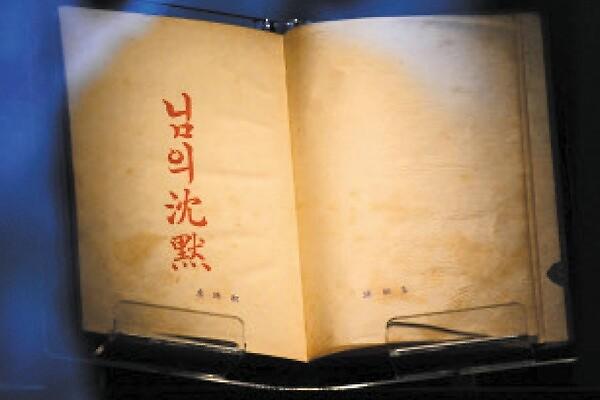 님의沈默